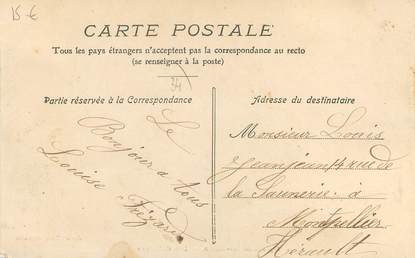 15 €
CARTE POSTALE
Tous les pays étrangers n'acceptent pas la correspondance au recto
(se renseigner à la poste)
34
Partie réservée à la Correspondance
Le
Bonjour a tous
Louise
Adresse du destinataire
Monsieur Louis
Jeanjean 14 rue de
la Saunerie à
Montpellier
Hérault